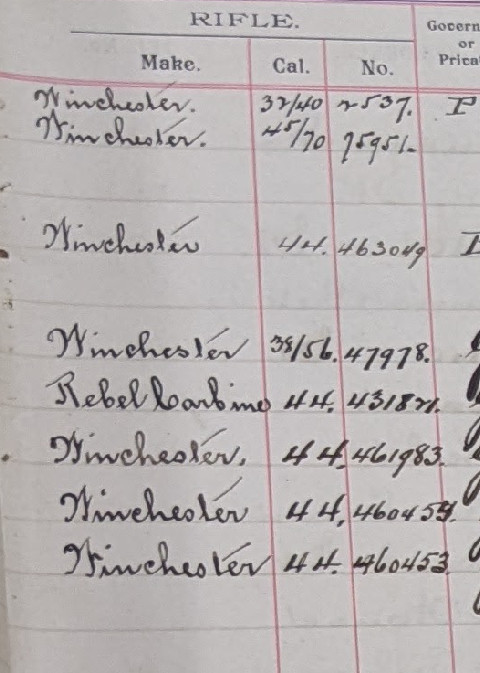 RIFLE. Govern
or
Make. Cal. No. Priva
Winchester. 32/40 2537. P
Winchester. 45/70 75951.
Winchester 44. 463049
Winchester 38/56. 47978.
Rebel Carbine 44.
Winchester. 44. 461983.
Winchester 44. 460454.
Winchester 44. 460453